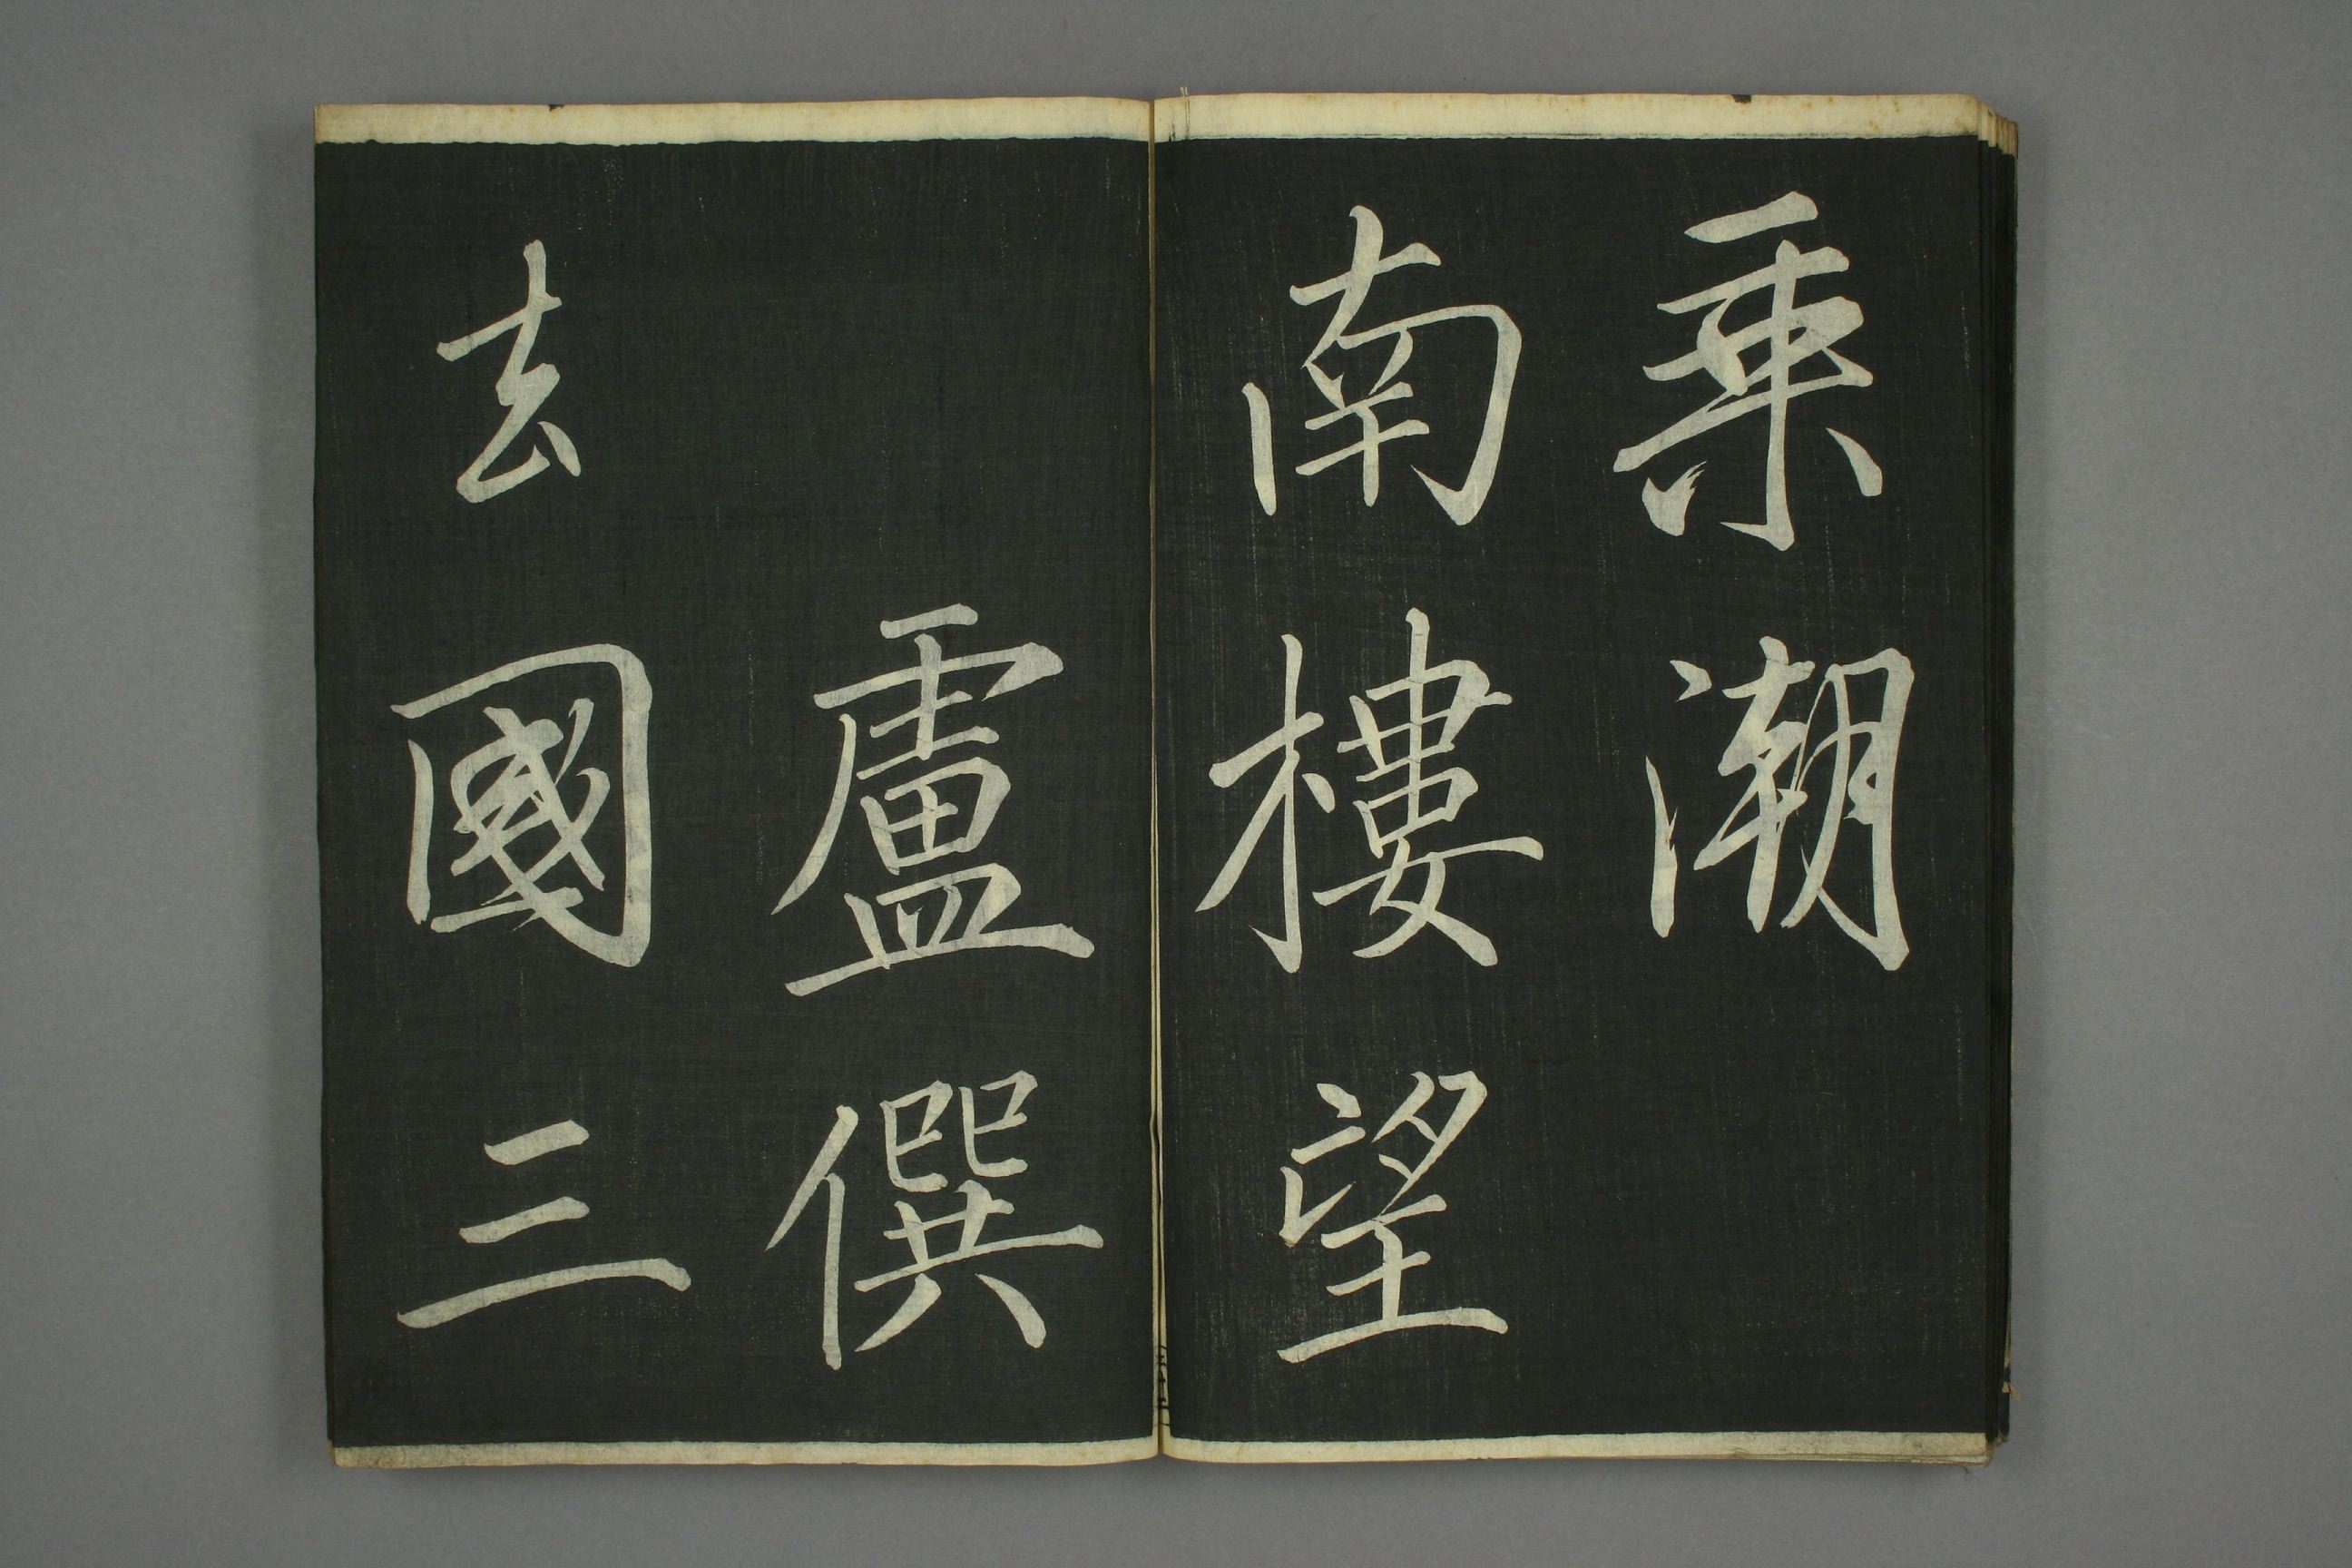 乗潮
南樓望
盧僎
去國三